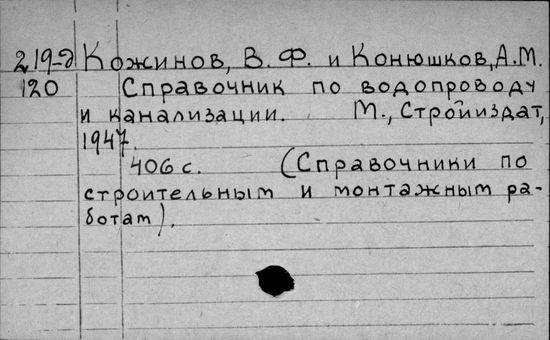 219-д Кожинов, В. Ф. и Конюшков, А.М.
120 Справочник по водопроводу
и канализации. М., Стройиздат,
1947.
406 с. (Справочники по
строительным и монтажным ра-
ботам).